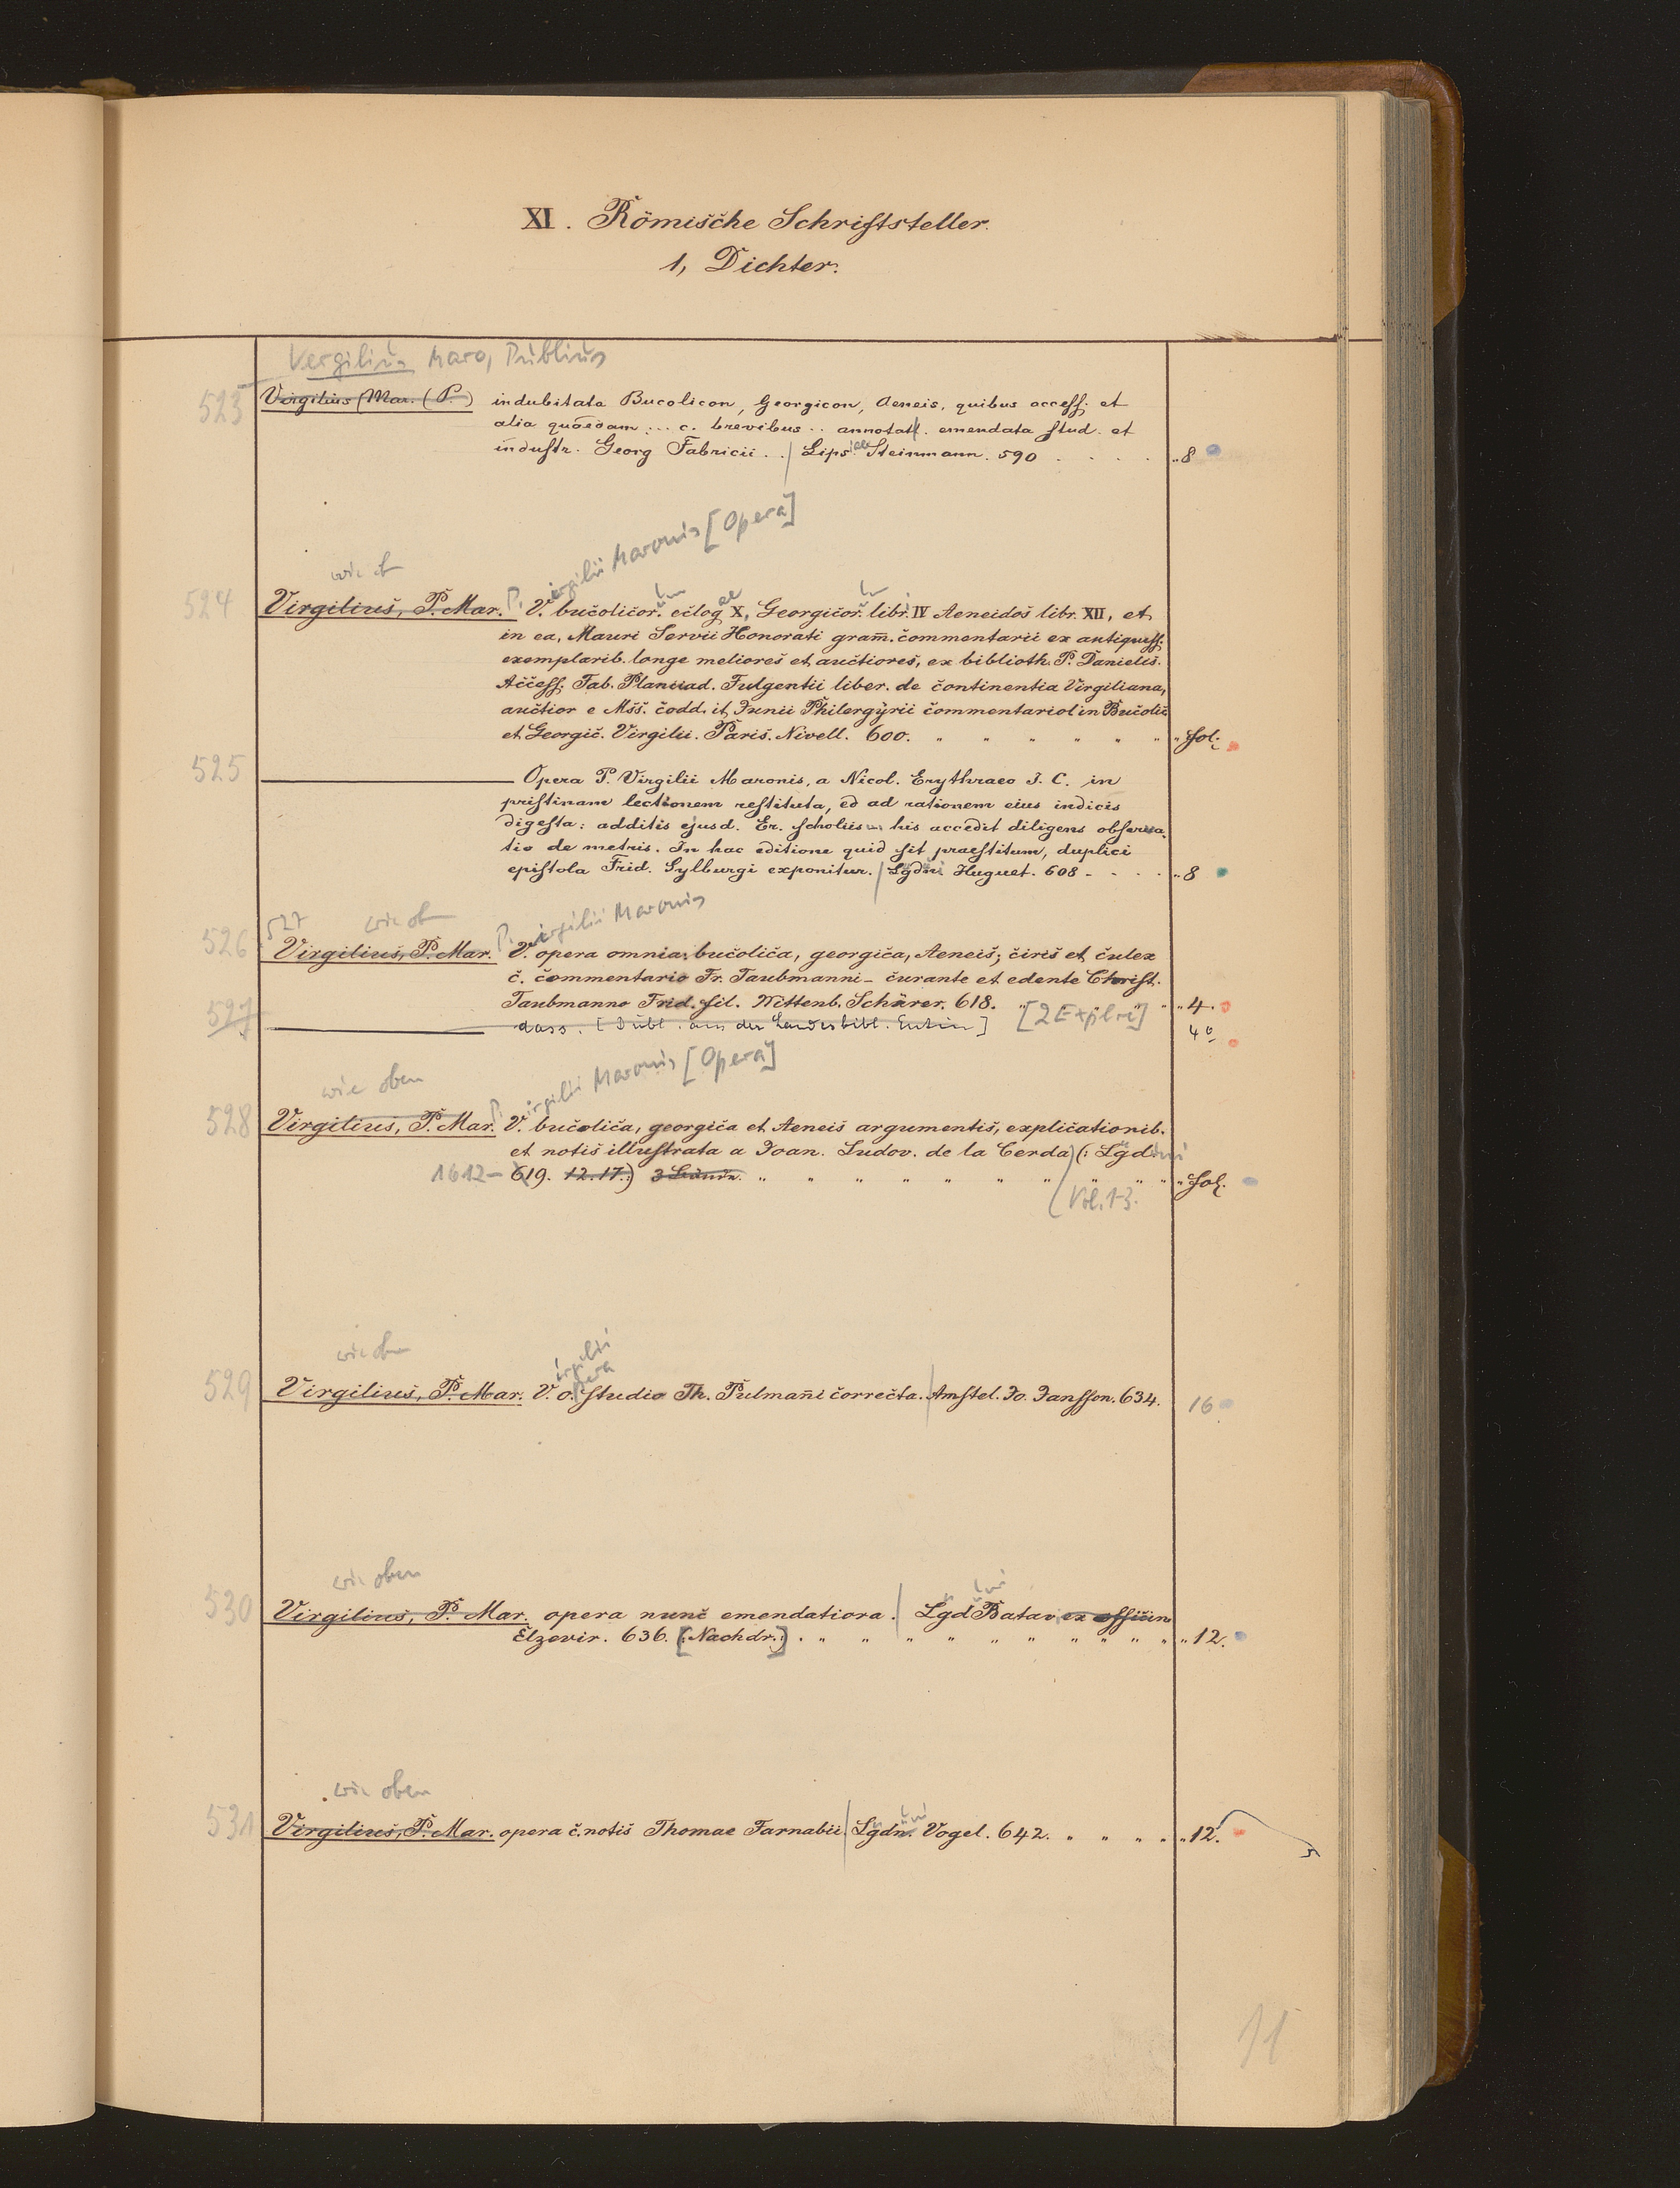 XI. Römische Schriftsteller.
1, Dichter.
Vergilius Maro, Publius
523 Virgilius (Mar. (P.) indubitata Bucolicon, Georgicon, Aeneis, quibus access. et
alia quaedam ... c. brevibus .. annotat. emendata stud. et
industr. Georg Fabricii .. / Lipsiae Steinmann. 590 . . . . „8
P. Virgilii Maronis [Opera]
wie ob
524 Virgilius, P. Mar. V. bucolicor. eclog X, Georgicor. libr. IV Aeneidos libr. XII, et
in ea, Mauri Servii Honorati gram. commentarii ex antiquiss.
exemplarib. longe meliores et auctiores, ex biblioth. P. Danielis.
Access. Fab. Planciad. Fulgentii liber. de continentia Virgiliana,
auctior e Mss. codd. it. Junii Philergyrii commentariol in Bucolic
et Georgic. Virgilii. Paris. Nivell. 600. „ „ „ „ „ „ „ fol.
525 Opera P. Virgilii Maronis, a Nicol. Erythraeo J. C. in
pristinam lectionem restituta, ed ad rationem eius indicis
digesta: additis ejusd. Er. scholiis his accedit diligens observa-
tio de metris. In hac editione quid sit praestitum, duplici
epistola Frid. Sylburgi exponitur. / Lgdni Huguet. 608 - . . . „8
527 wie ob P. Virgilii Maronis
526 Virgilius, P. Mar. V. opera omnia: bucolica, georgica, Aeneis; ciris et culex
c. commentario Fr. Taubmanni - curante et edente Christ.
Taubmanno Frid. fil. Wittenb. Schürer. 618. [2 Explre] „4.
527 dass. [Dubl. aus der Landesbibl. Eutin] 4°
wie oben P. Virgilii Maronis [Opera]
528 Virgilius, P. Mar. V. bucolica, georgica et Aeneis argumentis, explicationib.
et notis illustrata a Joan. Ludov. de la Cerda) (: Lgduni
1612-619. 12. 17.) 3 Bände. „ „ „ „ „ „ „ „ „ fol.
/ Vol. 1-3.
wie oben
529 Virgilius, P. Mar. Virgilii opera studio Th. Pulmani correcta. / Amstel. Jo. Jansson. 634. 16
wie oben
530 Virgilius, P. Mar. opera nunc emendatiora. / Lgd Batav ex officin
Elzevir. 636. [(Nachdr.)] . „ „ „ „ „ „ „ „ „ „ „ 12.
wie oben
531 Virgilius, P. Mar. opera c. notis Thomae Farnabii. / Lgdn. Vogel. 642. „ „ „ „ „12.